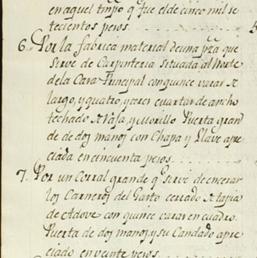 en aquel timpo q.e fue el de cinco mil se
tecientos pesos.
6. Por la fabrica material de una p.za que
sirve de Carpinteria situada al Norte
de la Cara Principal con quince varas de
largo, y quatro, y tres cuartas de ancho
techado de Vafa, y Morillo Puerta gran
de de dos manos con Chapa y Llave apre
ciada en cincuenta pesos.
7. Por un Corral grande q.e sirve de encerar
los Carneros del Gasto cercado de tapia
de Adove con quince varas en cuadro.
Puerta de dos manos, y su Candado apre
ciado en veinte pesos.